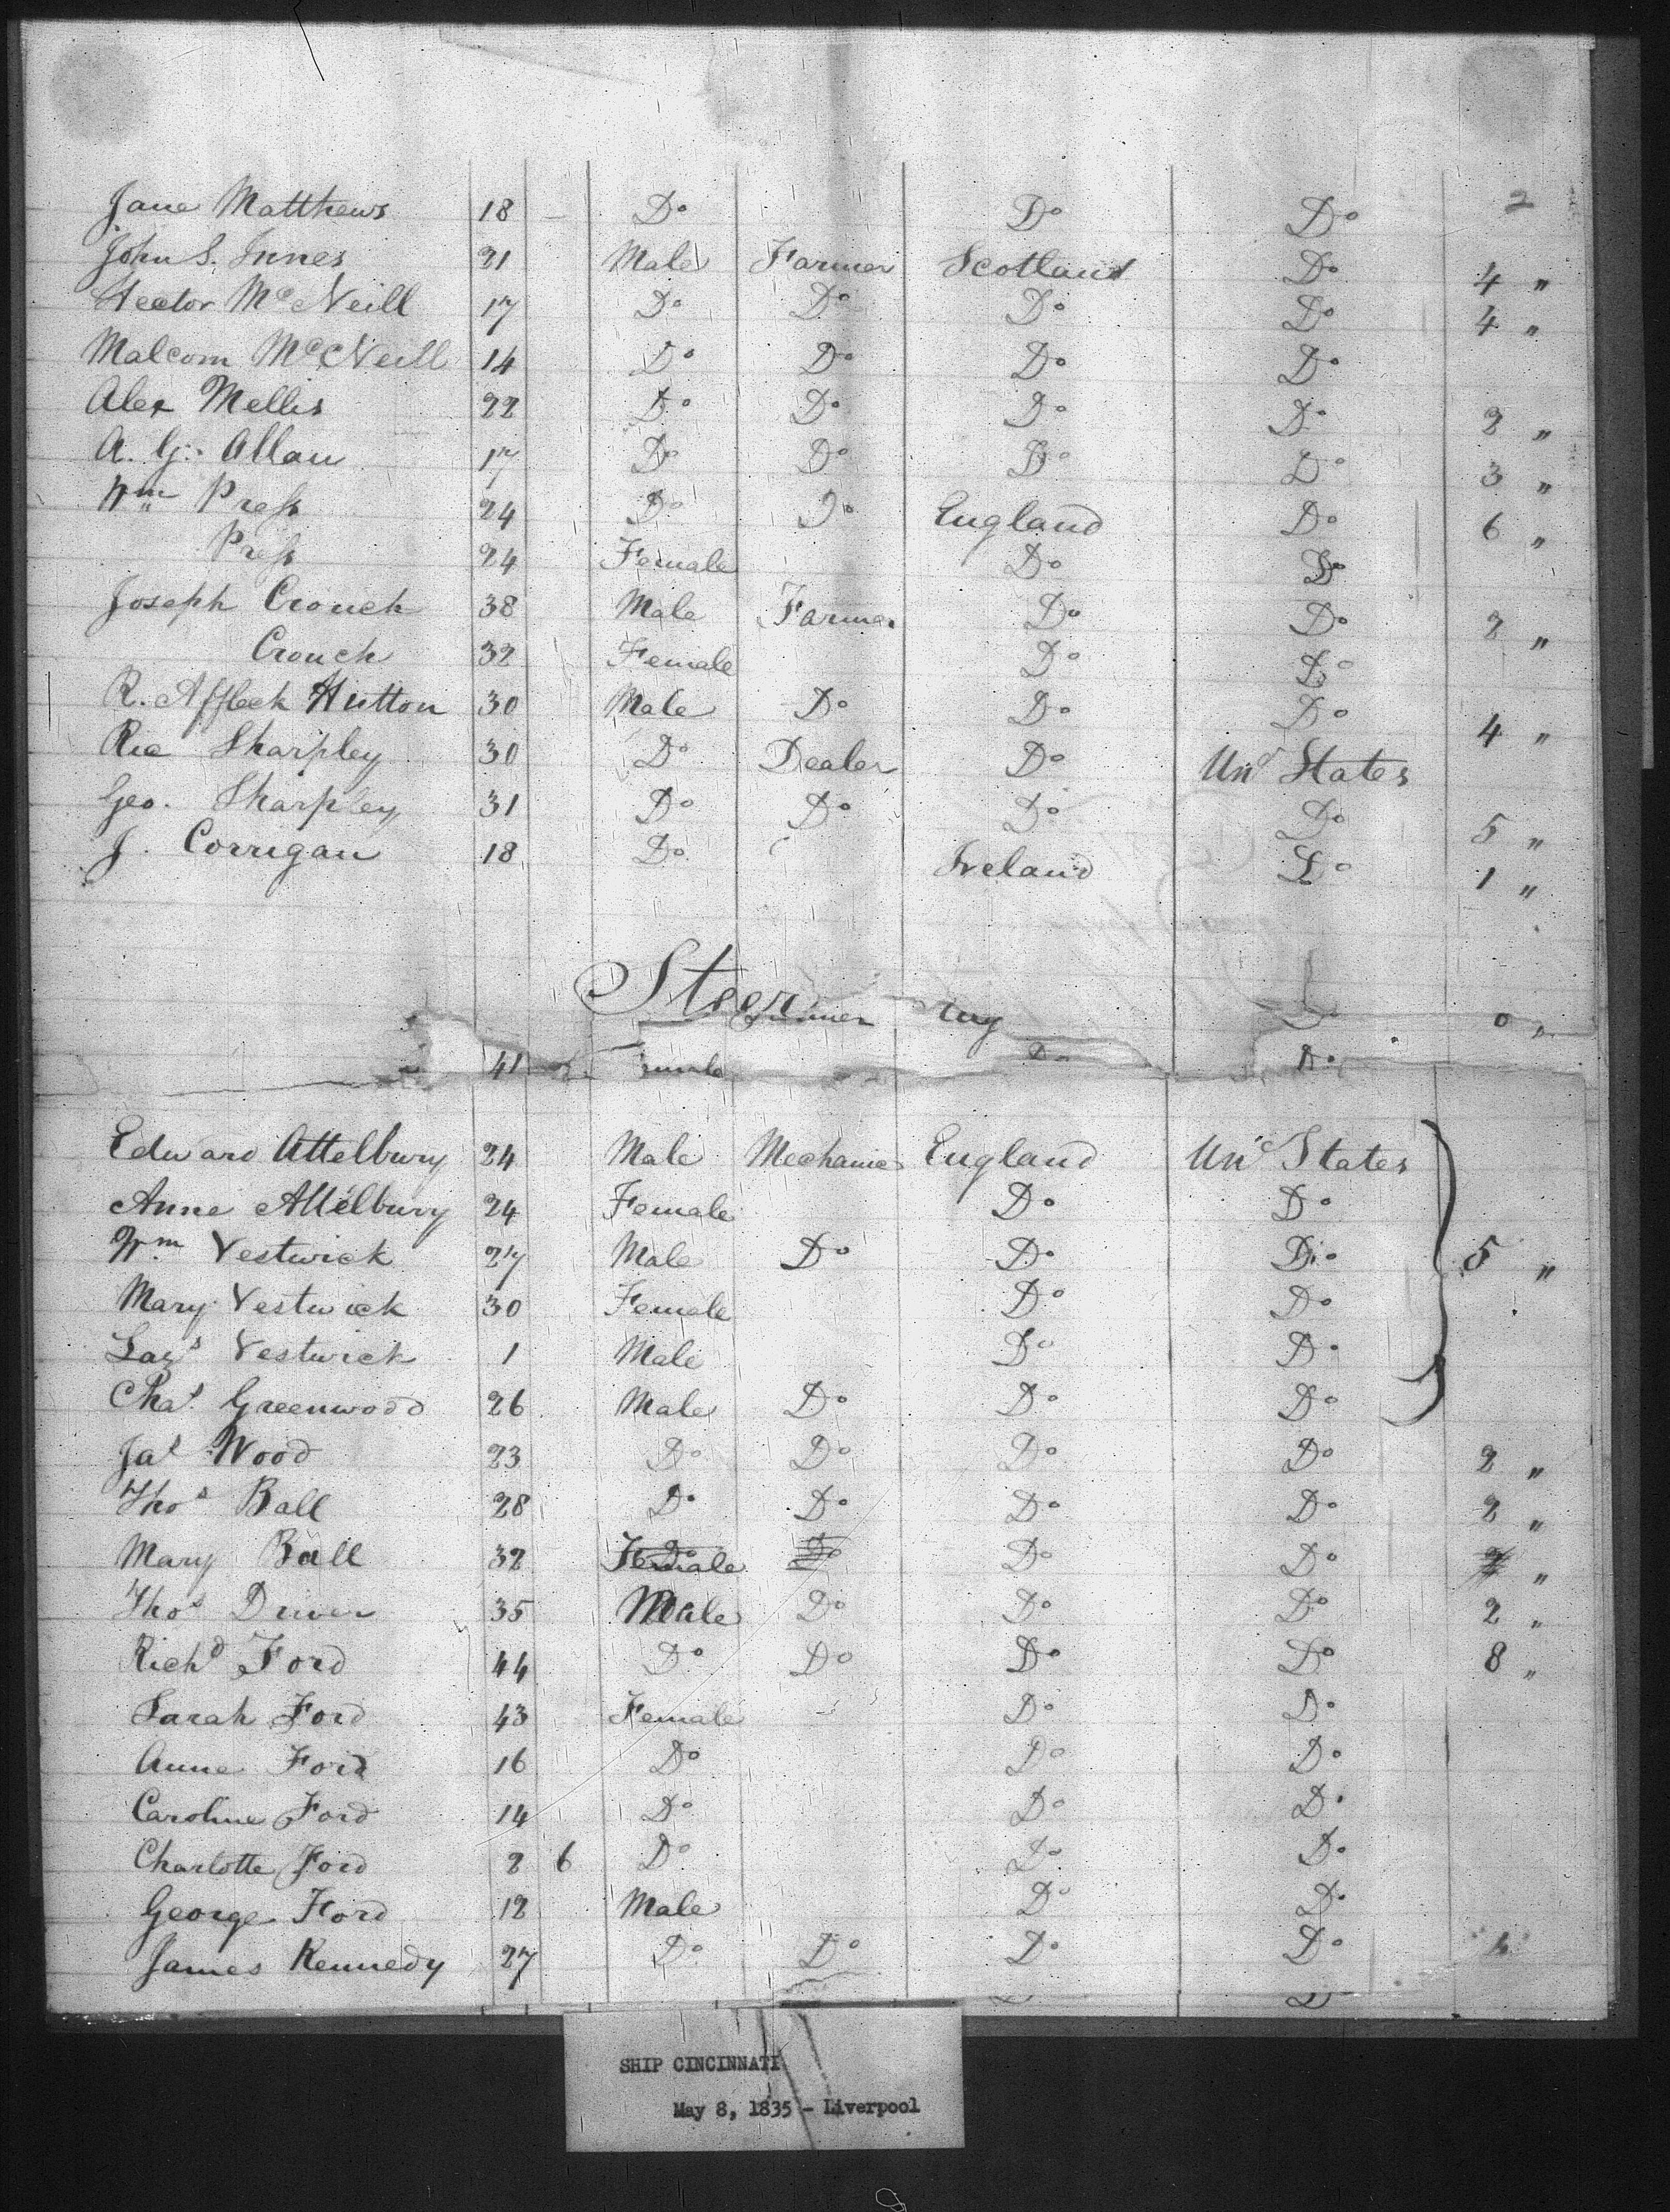 2
Jane Matthews 18 — Do Do Do
John S. Innes 21 Male Farmer Scotland Do 4 "
Hector McNeill 17 Do Do Do Do 4 "
Malcom McNeill 14 Do Do Do Do
Alex Mellis 22 Do Do Do Do 2 "
A. G. Allan 17 Do Do Do Do 3 "
Wm Press 24 Do Do England Do 6 "
Press 24 Female Do Do
Joseph Crouch 38 Male Farmer Do Do 2 "
Crouch 32 Female Do Do
R. Affleck Hutton 30 Male Do Do Do 4 "
Ric Sharpley 30 Do Dealer Do Und States
Geo. Sharpley 31 Do Do Do Do 5 "
J. Corrigan 18 Do Ireland Do 1 "
Steer
41 Do Do
Edward Attelbury 24 Male Mechanic England Und States
Anne Attelbury 24 Female Do Do
Wm Vestwick 27 Male Do Do Do 5 "
Mary Vestwick 30 Female Do Do
Vestwick 1 Male Do Do
Chas Greenwood 26 Male Do Do Do
Jas Wood 23 Do Do Do Do 2 "
Thos Ball 28 Do Do Do Do 2 "
Mary Ball 32 Female Do Do Do "
Thos Driver 35 Male Do Do Do 2 "
Richd Ford 44 Do Do Do Do 8 "
Sarah Ford 43 Female Do Do
Anne Ford 16 Do Do Do
Caroline Ford 14 Do Do Do
Charlotte Ford 2 6 Do Do Do
George Ford 12 Male Do Do
James Kennedy 27 Do Do Do Do
SHIP CINCINNATI
May 8, 1835 - Liverpool